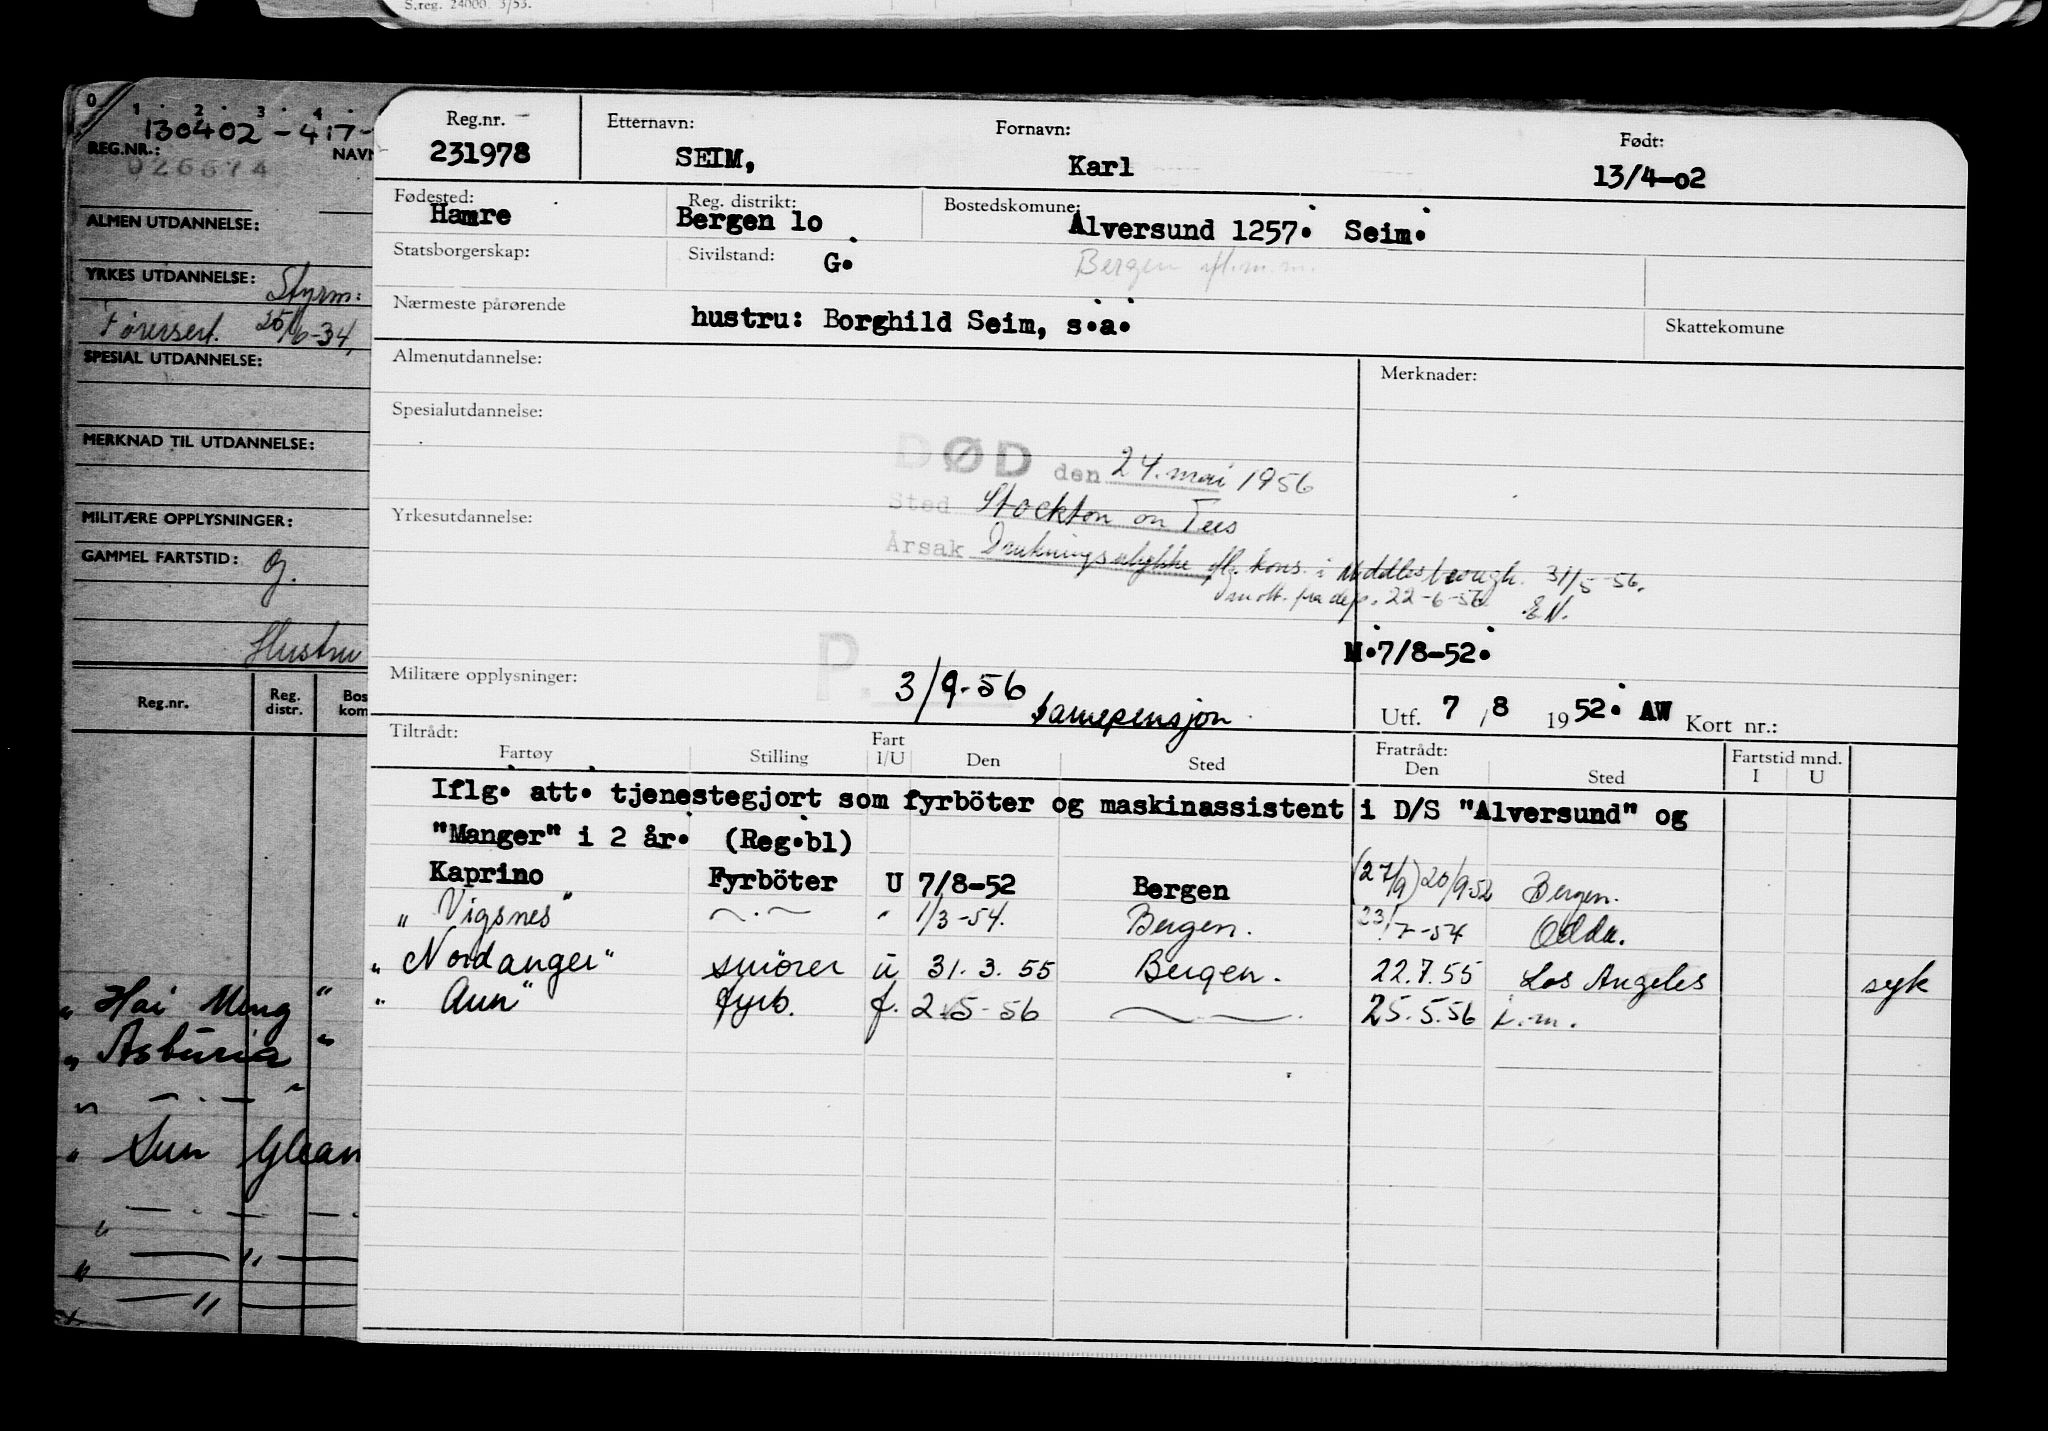 S.reg. 24000. 3/53.
0 1 2 3 4
130402-417-
REG.NR.: NAVN
026674
ALMEN UTDANNELSE:
YRKES UTDANNELSE: Styrm:
Førersert. 25/6-34,
SPESIAL UTDANNELSE:
MERKNAD TIL UTDANNELSE:
MILITÆRE OPPLYSNINGER:
GAMMEL FARTSTID: G.
Hustru
Reg.nr. Reg. distr. Bos kom
" Hai Ming "
" Asturia "
" — . — "
" Sun Glean
" — . — — .
" — " —
— " —
Reg.nr. Etternavn: Fornavn: Født:
231978 SEIM, Karl 13/4-o2
Fødested: Reg. distrikt: Bostedskomune:
Hamre Bergen 1o Alversund 1257. Seim.
Statsborgerskap: Sivilstand: G. Bergen
Nærmeste pårørende hustru: Borghild Seim, s.a. Skattekomune
Almenutdannelse: Merknader:
Spesialutdannelse:
DØD den 24. mai 1956
Sted Stockton on Tees
Yrkesutdannelse:
Årsak Drukningsulykke iflg. kons. i Middlesbrough. 31/5-56.
mott. fra dep. 22-6-56 E.N.
M.7/8-52.
Militære opplysninger: P. 3/9-56
barnepensjon
Utf. 7/8 1952. AW Kort nr.:
Tiltrådt: Fratrådt: Fartstid mnd.
Fartøy Stilling Fart I/U Den Sted Den Sted I U
Iflg. att. tjenestegjort som fyrböter og maskinassistent i D/S "Alversund" og
"Manger" i 2 år. (Reg.bl)
Kaprino Fyrböter U 7/8-52 Bergen (27/9) 20/9-52 Bergen.
" Vigsnes" — . — " 1/3-54. Bergen. 23/7-54 Odda.
" Nordanger" smører u 31.3.55 Bergen. 22.7.55 Los Angeles syk
" Aun" fyrb. f. 2-5-56 — . — 25.5.56 i.m.